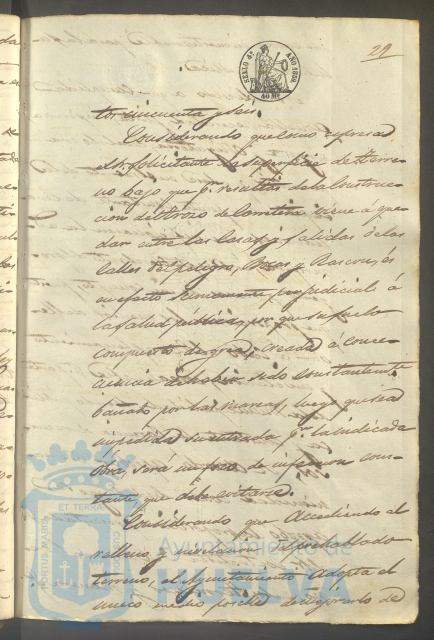 29
SELLO 4º AÑO 1859
40 Ms
tos cincuenta y seis.
Considerando que como espresa
el Sr. Solicitante la superficie de terre-
no bajo que pr. resultas de la Construc-
cion del trozo de Carretera viene á que-
dar entre las Casas y salidas de las
Calles del Peligro, Bocas y Rascon, és
en efecto sumamente perjudicial á
la salud pública, por que su suelo
compuesto de creada á conse-
cuencia de haber sido constantemente
bañado por las mareas, luego que sea
impedida su entrada pr. la indicada
obra, será un foco de infeccion cons-
tante, que debe evitarse.
Considerando que Accediendo al
relleno y nivelacion del prehablado
terreno, el Ayuntamiento Adopta el
unico medio posible de mejorarlo de
ET TERRA
PORTUS MARIS
CUSTODIA
Ayuntamiento de
HUELVA